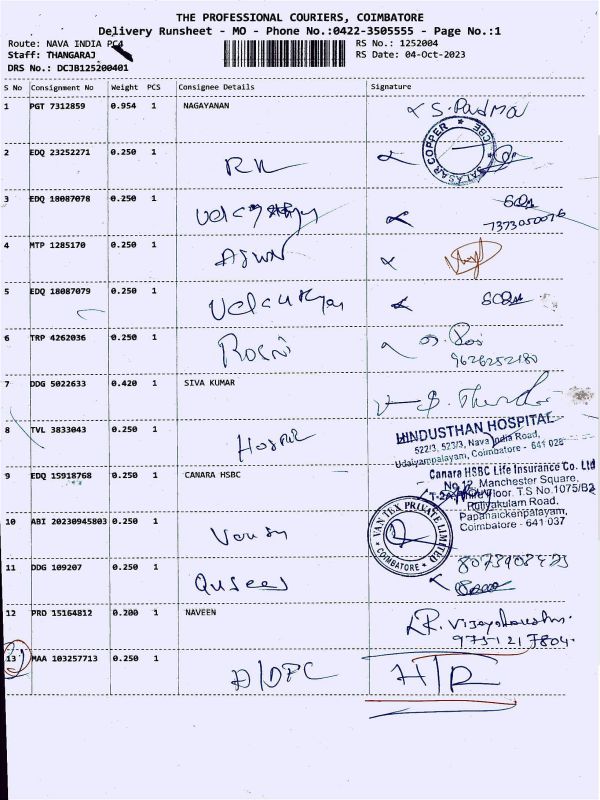 THE PROFESSIONAL COURIERS, COIMBATORE
Delivery Runsheet - MO - Phone No.:0422-3505555 - Page No.:1
Route: NAVA INDIA PC4
RS No.: 1252004
Staff: THANGARAJ
RS Date: 04-Oct-2023
DRS No.: DCJB125200401
S No Consignment No Weight PCS Consignee Details Signature
1 PGT 7312859 0.954 1 NAGAYANAN S. Padma
SALASAR COPPER CBE
2 EDQ 23252271 0.250 1 RK
3 EDQ 18087078 0.250 1
7373050076
4 MTP 1285170 0.250 1 ASWN
5 EDQ 18087079 0.250 1
6 TRP 4262036 0.250 1 ROSNI
9626252180
7 DDG 5022633 0.420 1 SIVA KUMAR
8 TVL 3833043 0.250 1 Hospital
HINDUSTHAN HOSPITAL
522/3, 523/3, Nava India Road,
Udaiyampalayam, Coimbatore - 641 028
9 EDQ 15918768 0.250 1 CANARA HSBC
Canara HSBC Life Insurance Co. Ltd
No.12, Manchester Square,
Floor. T.S No.1075/B2
Puliyakulam Road,
Papanaickenpalayam,
Coimbatore - 641 037
10 ABI 20230945803 0.250 1
VAN TEX PRIVATE LIMITED
COIMBATORE
11 DDG 109207 0.250 1
12 PRO 15164812 0.200 1 NAVEEN
13 MAA 103257713 0.250 1 H/R